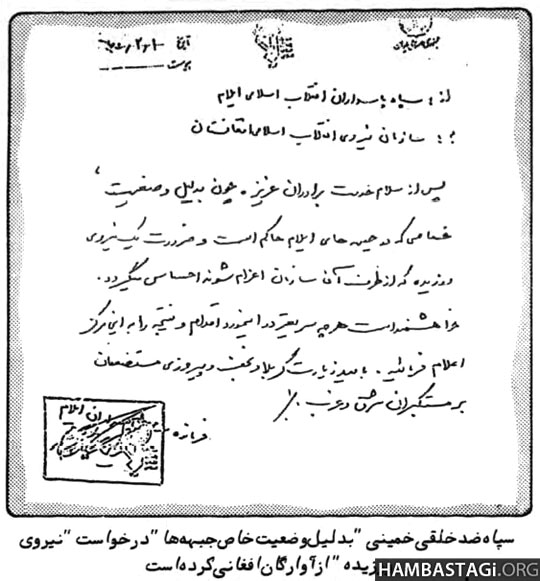 تاریخ
پیوست
از: سپاه پاسداران انقلاب اسلامی ایلام
به: سازمان نیروی انقلاب اسلامی افغانستان
پس از سلام خدمت برادران عزیز. چون بدلیل وضعیت
خاصی که در جبهه های ایلام حاکم است و ضرورت یک نیروی
ورزیده که از طرف آن سازمان اعزام شوند احساس میگردد.
خواهشمند است هر چه سریعتر در اینمورد اقدام و نتیجه را به این مرکز
اعلام فرمائید. بامید زیارت کربلا و نجف و پیروزی مستضعفان
بر مستکبران شرق و غرب.
سپاه ضدخلقی خمینی "بدلیل وضعیت خاص جبهه‌ها" درخواست "نیروی
زیده" از آوارگان افغانی کرده است
HAMBASTAGI.ORG